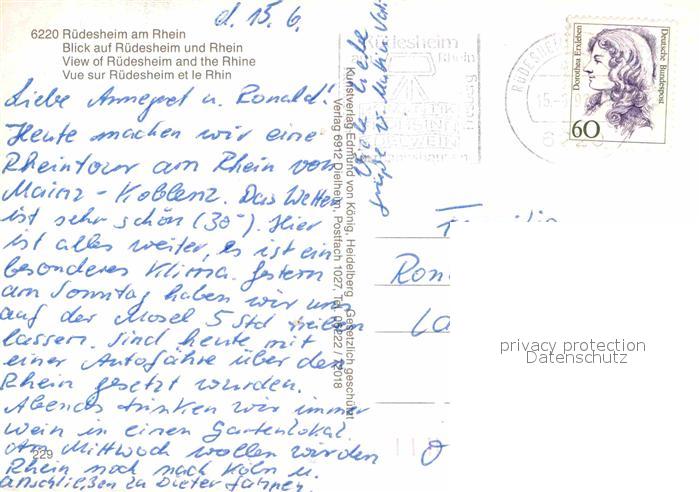 d. 15.6.
6220 Rüdesheim am Rhein
Blick auf Rüdesheim und Rhein
View of Rüdesheim and the Rhine
Vue sur Rüdesheim et le Rhin
Liebe Annegret u. Ronald!
Heute machen wir eine
Rheintour am Rhein von
Mainz - Koblenz. Das Wetter
ist sehr schön (30°). Hier
ist alles weiter, es ist ein
besonderes Klima. Gestern
am Sonntag haben wir uns
auf der Mosel 5 Std treiben
lassen. Sind heute mit
einer Autofähre über den
Rhein gesetzt wurden.
Abends trinken wir immer
Wein in einen Gartenlokal.
Am Mittwoch wollen wir den
Rhein noch nach Köln u.
anschließen zu Dieter fahren.
229
Viele liebe
Grüße v.
Kunstverlag Edmund von König, Heidelberg
Verlag 6912 Dielheim, Postfach 1027, Tel. 06222 / 72018
Gesetzlich geschützt
Rüdesheim
Rhein
Dorothea Erxleben
Deutsche Bundespost
60
Ron
La
O
privacy protection
Datenschutz